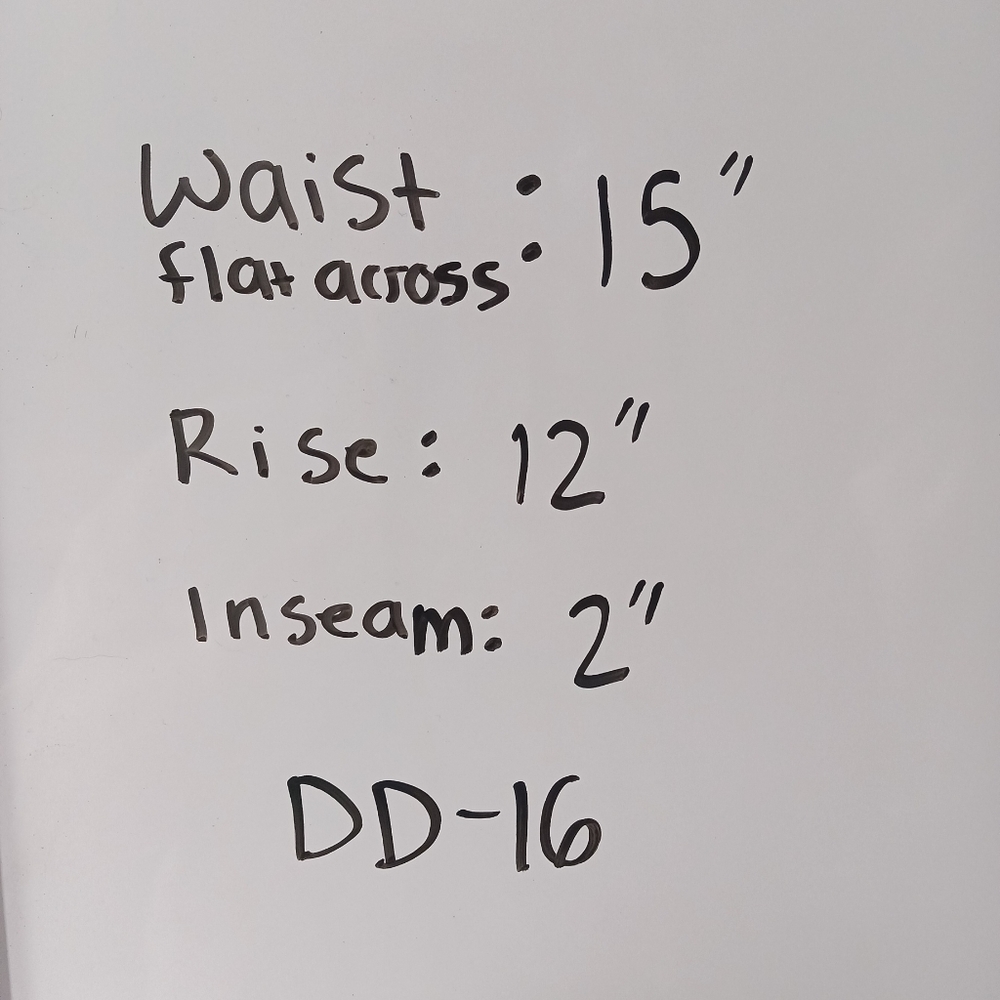 Waist : 15"
flat across:
Rise: 12"
Inseam: 2"
DD-16